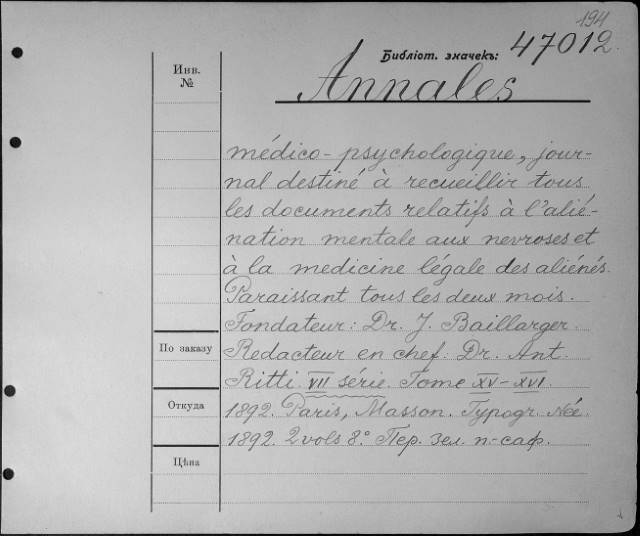 194
Библіот. значекъ: 47012.
Инв.
№
Annales
médico-psychologique, jour-
nal destiné à recueillir tous
les documents relatifs à l'alié-
nation mentale aux nevroses et
à la medicine légale des aliénés.
Paraissant tous les deux mois.
Fondateur: Dr. J. Baillarger.
По заказу
Redacteur en chef: Dr. Ant.
Ritti. VII série. Tome XV-XVI.
Откуда
1892. Paris, Masson. Typogr. Née.
1892. 2 vols 8.° Пер. зел. п-саф.
Цѣна